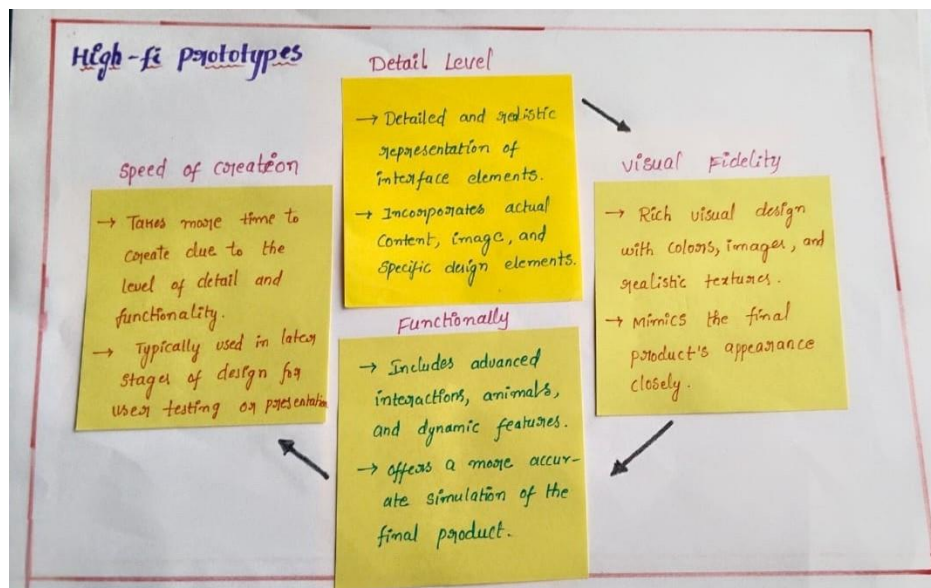 High-fi Prototypes
Detail Level
→ Detailed and realistic
representation of
interface elements.
→ Incorporates actual
Content, image, and
specific design elements.
Visual Fidelity
→ Rich visual design
with colors, images, and
realistic textures.
→ Mimics the final
product's appearance
closely.
Functionally
→ Includes advanced
interactions, animals,
and dynamic features.
→ offers a more accur-
ate simulation of the
final product.
Speed of Creation
→ Takes more time to
create due to the
level of detail and
functionality.
→ Typically used in later
stages of design for
user testing or presentation